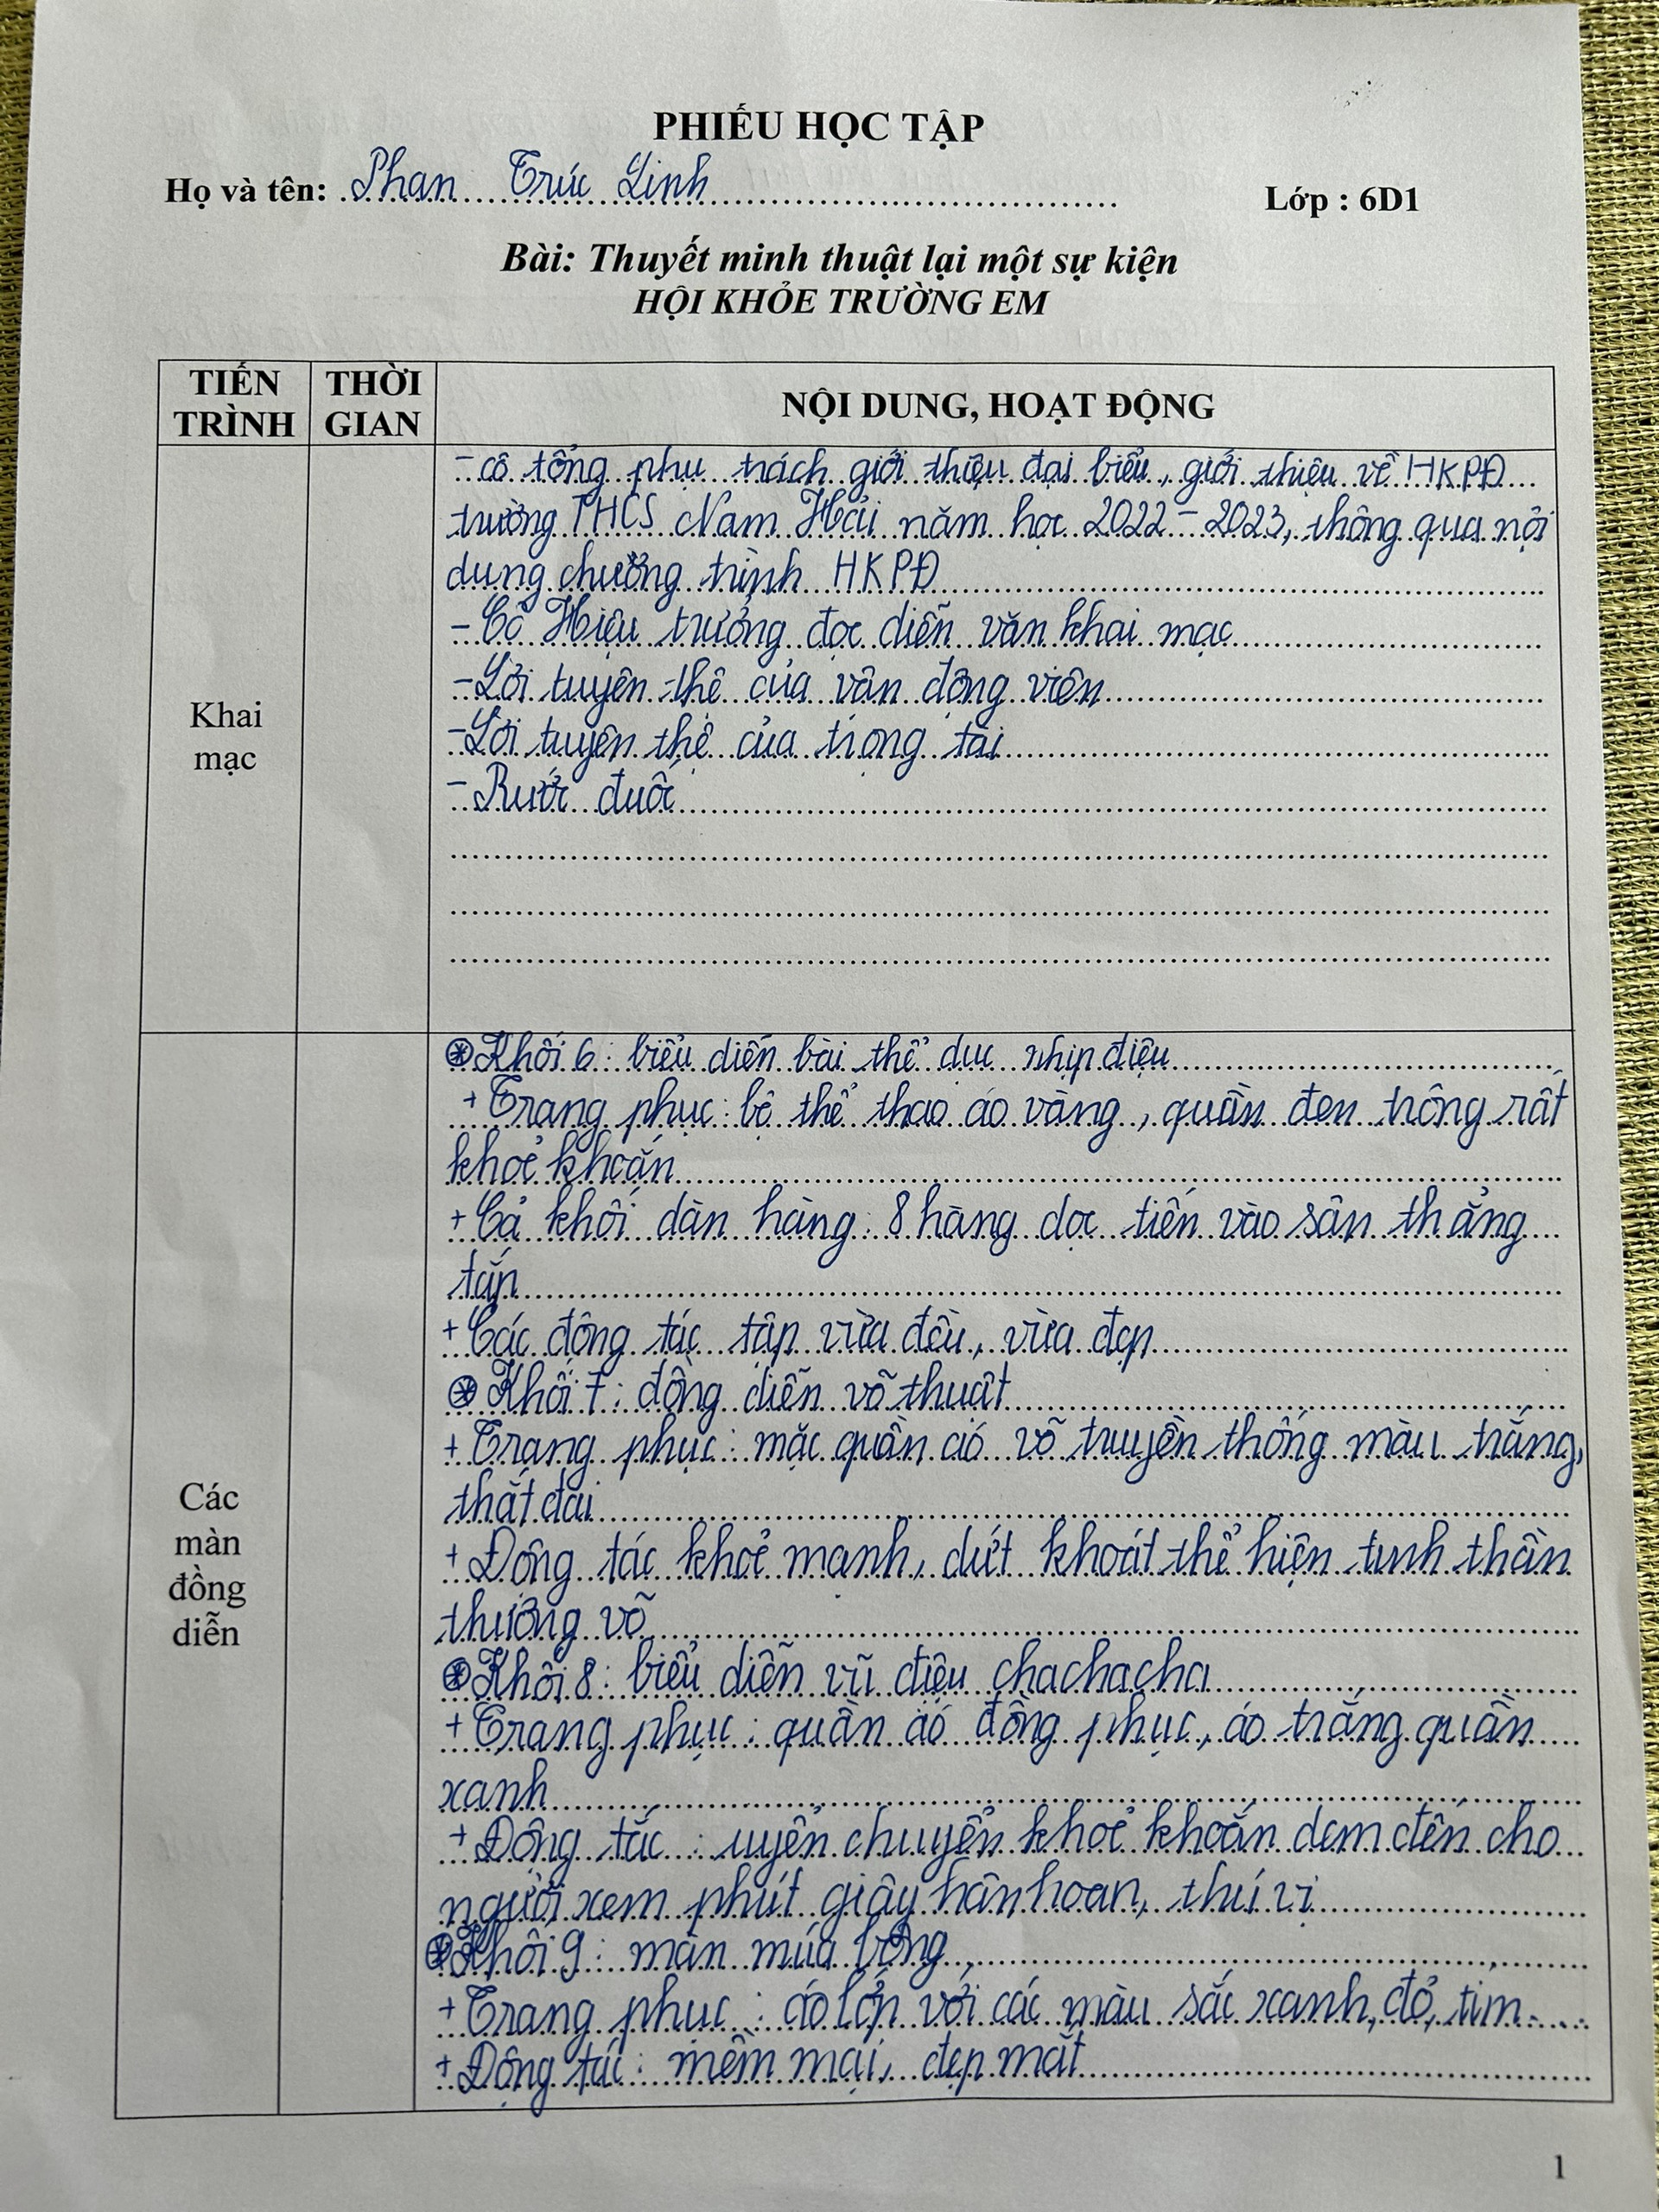 PHIẾU HỌC TẬP
Họ và tên: Phan Trúc Linh Lớp : 6D1
Bài: Thuyết minh thuật lại một sự kiện
HỘI KHỎE TRƯỜNG EM
TIẾN TRÌNH THỜI GIAN NỘI DUNG, HOẠT ĐỘNG
Khai mạc
- cô tổng phụ trách giới thiệu đại biểu, giới thiệu về HKPĐ
trường THCS Nam Hải năm học 2022 - 2023, thông qua nội
dung chương trình HKPĐ
- Cô Hiệu trưởng đọc diễn văn khai mạc
- Lời tuyên thệ của vận động viên
- Lời tuyên thệ của trọng tài
- Rước đuốc
Các màn đồng diễn
* Khối 6: biểu diễn bài thể dục nhịp điệu
+ Trang phục: bộ thể thao áo vàng, quần đen trông rất
khoẻ khoắn
+ Cả khối dàn hàng: 8 hàng dọc tiến vào sân thẳng
tắp
+ Các động tác tập vừa đều, vừa đẹp
* Khối 7: đồng diễn võ thuật
+ Trang phục: mặc quần áo võ truyền thống màu trắng,
thắt đai
+ Động tác khoẻ mạnh, dứt khoát thể hiện tinh thần
thượng võ
* Khối 8: biểu diễn vũ điệu chachacha
+ Trang phục: quần áo đồng phục, áo trắng quần
xanh
+ Động tác: uyển chuyển khoẻ khoắn đem đến cho
người xem phút giây hân hoan, thú vị
* Khối 9: màn múa bông
+ Trang phục: áo lớp với các màu sắc xanh, đỏ, tím...
+ Động tác: mềm mại, đẹp mắt
1